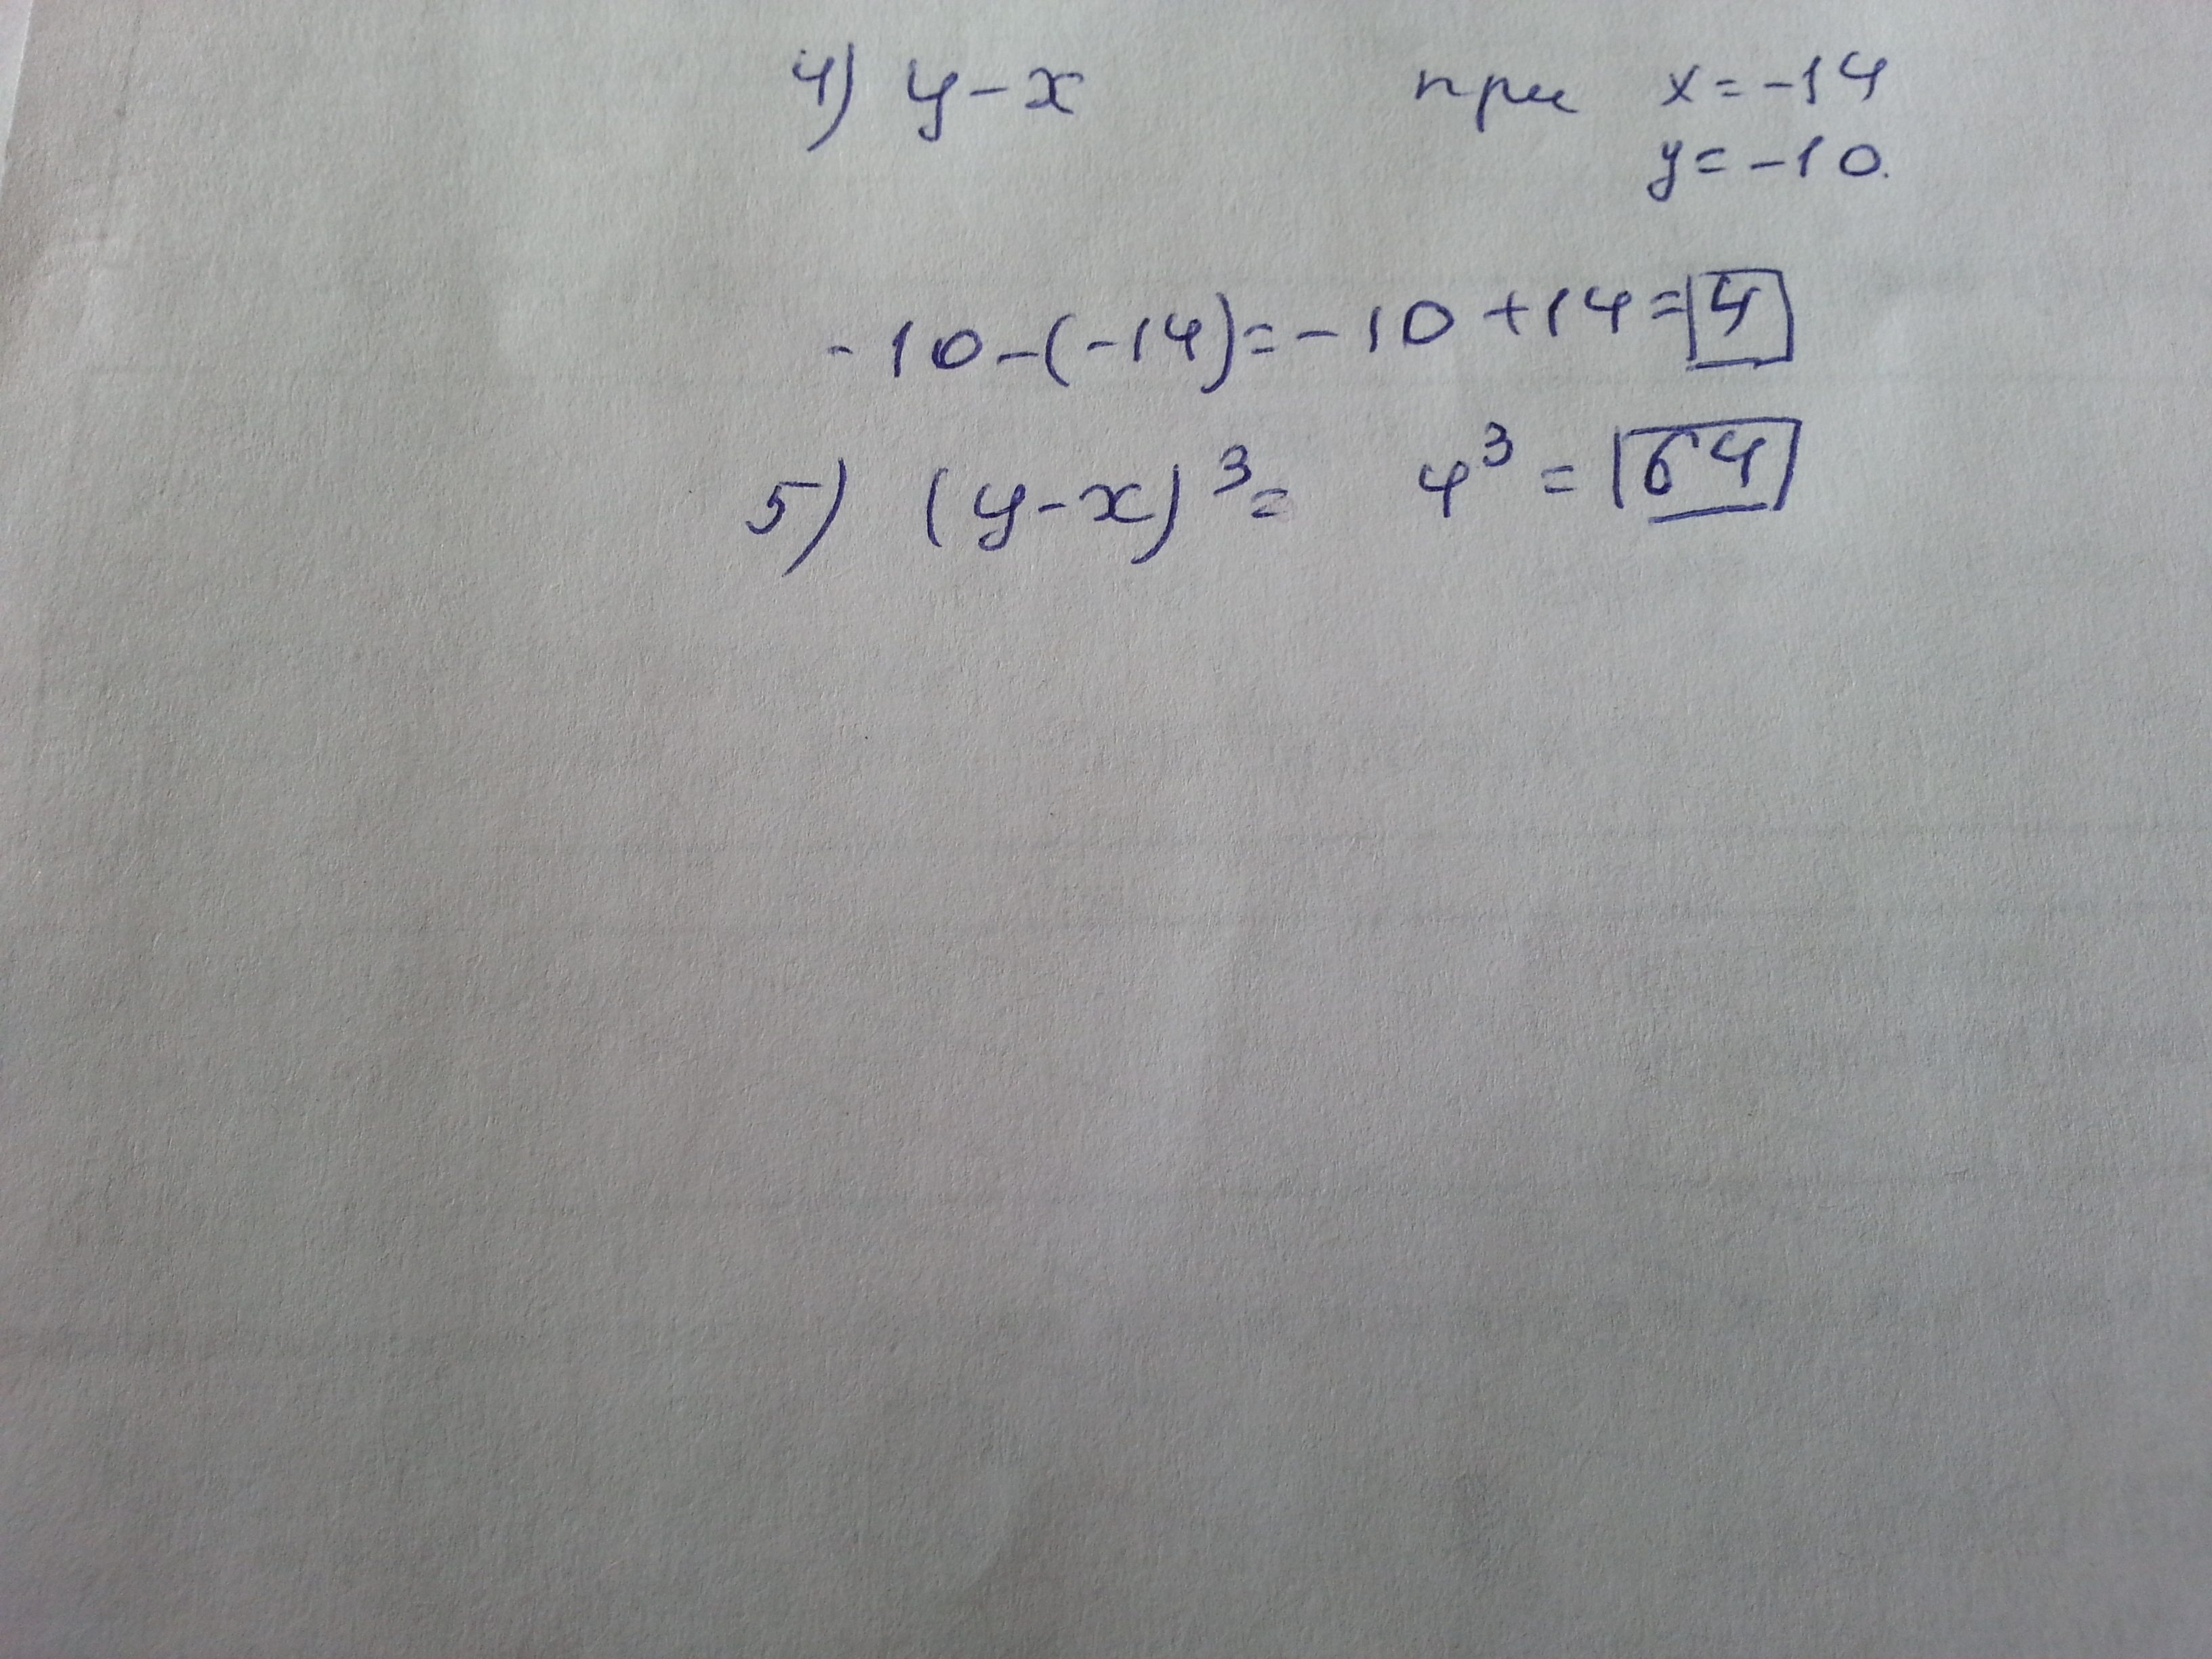 4) y-x при x=-14
y=-10.
-10-(-14)=-10+14=4
5) (y-x)³= 4³=64